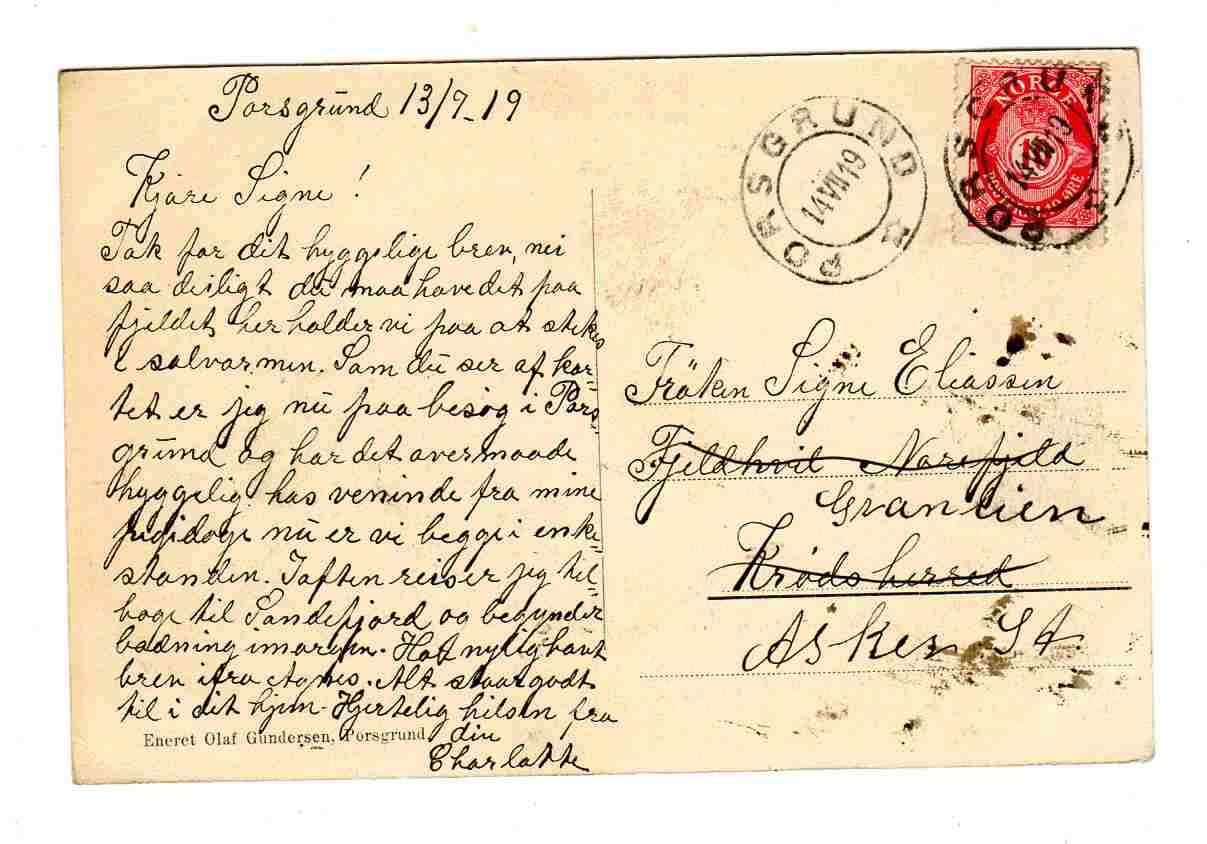 Porsgrund 13/7-19
Kjære Signe!
Tak for dit hyggelige brev, nei
saa deiligt du maa have det paa
fjeldet her holder vi paa at stekes
i solvarmen. Som du ser af kor-
tet er jeg nu paa besøg i Pors-
grund og har det overmaade
hyggelig hos veninde fra mine
pigedage nu er vi begge i enke-
standen. Iaften reiser jeg til-
bage til Sandefjord og begynder
badning imorgen. Har nylig havt
brev ifra Agnes. Alt staar godt
til i dit hjem. Hjertelig hilsen fra
din
Charlotte
Eneret Olaf Gundersen, Porsgrund.
PORSGRUND
14 VII 19
NORGE
10
POSTFRIM. 10 ØRE
PORSGRUND
14 VII 19
Fröken Signe Eliassen
Fjeldhvil Norefjeld
Granlien
Krødsherred
Asker St